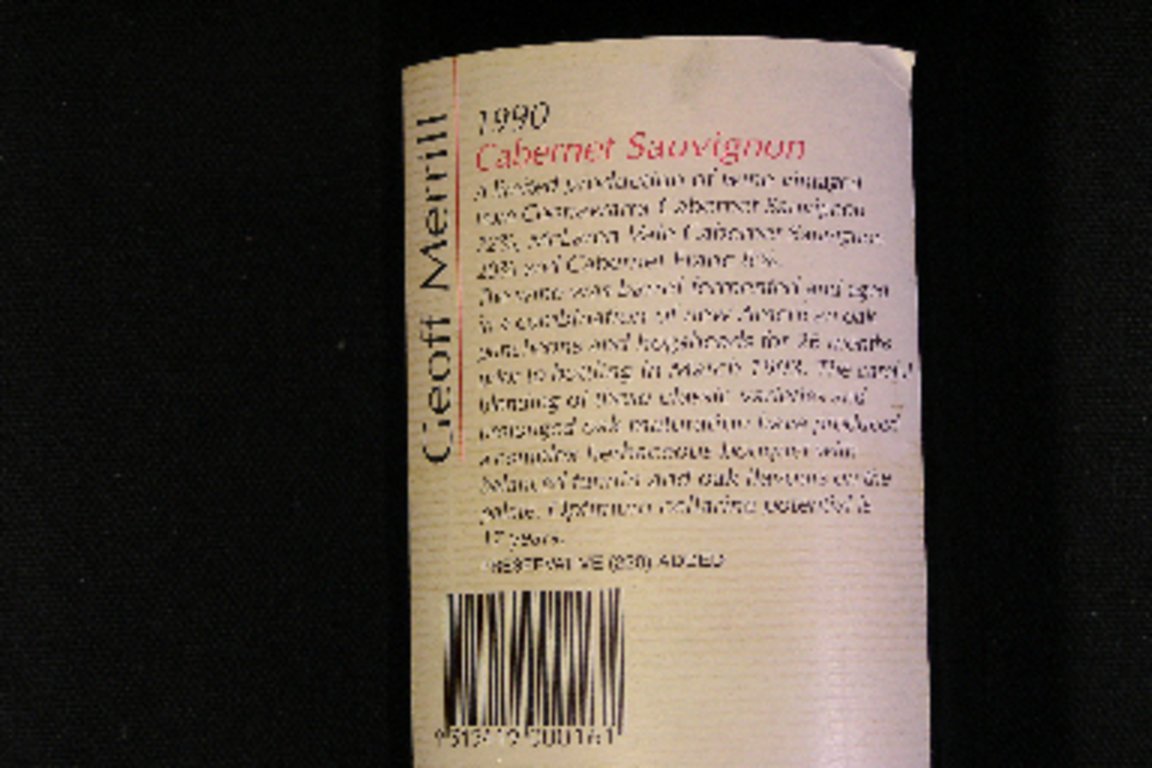 Geoff Merrill
1990
Cabernet Sauvignon
A limited production of wine vintaged
from Coonawarra Cabernet Sauvignon
McLaren Vale Cabernet Sauvignon
and Cabernet Franc
The wine was barrel fermented and aged
in a combination of new American oak
puncheons and hogsheads for 26 months
prior to bottling in March 1993. The careful
blending of these classic varieties and
prolonged oak maturation have produced
a complex herbaceous bouquet with
balanced tannin and oak flavours on the
palate. Optimum cellaring potential is
years.
PRESERVATIVE (220) ADDED